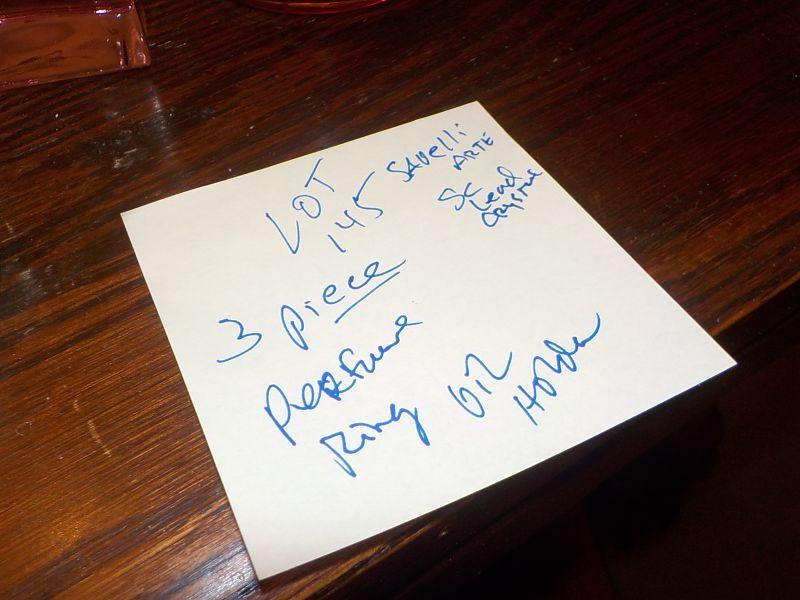 LOT
145
SAVelli
ARTE
Sc
Lead
CRYSTAL
3 Piece
PeRFume
Ring OIL
Holder